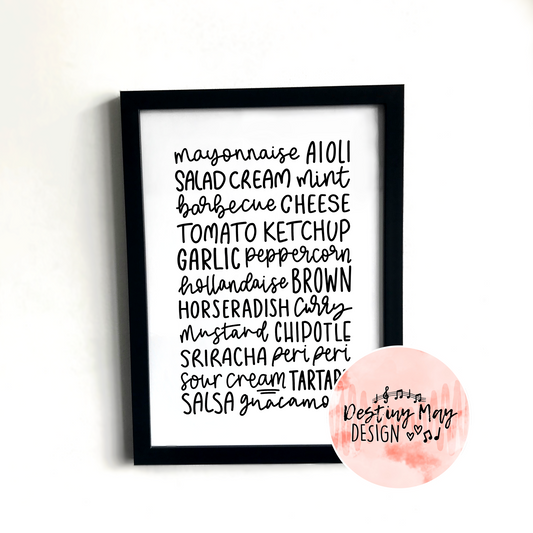 mayonnaise AIOLI
SALAD CREAM mint
barbecue CHEESE
TOMATO KETCHUP
GARLIC peppercorn
hollandaise BROWN
HORSERADISH curry
mustard CHIPOTLE
SRIRACHA peri peri
sour cream TARTAR
SALSA guacamo
Destiny May
DESIGN